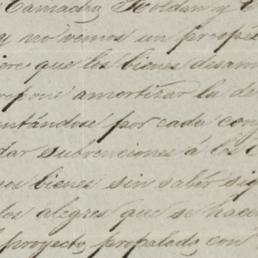 Camacho Roldan y
y no vemos un prope
iere que los bienes desam
ropone amortizar la de
ntándose por cada con
dar subvenciones á los
os bienes sin saber sig
los alegres que se hace
l proyecto, propalada con